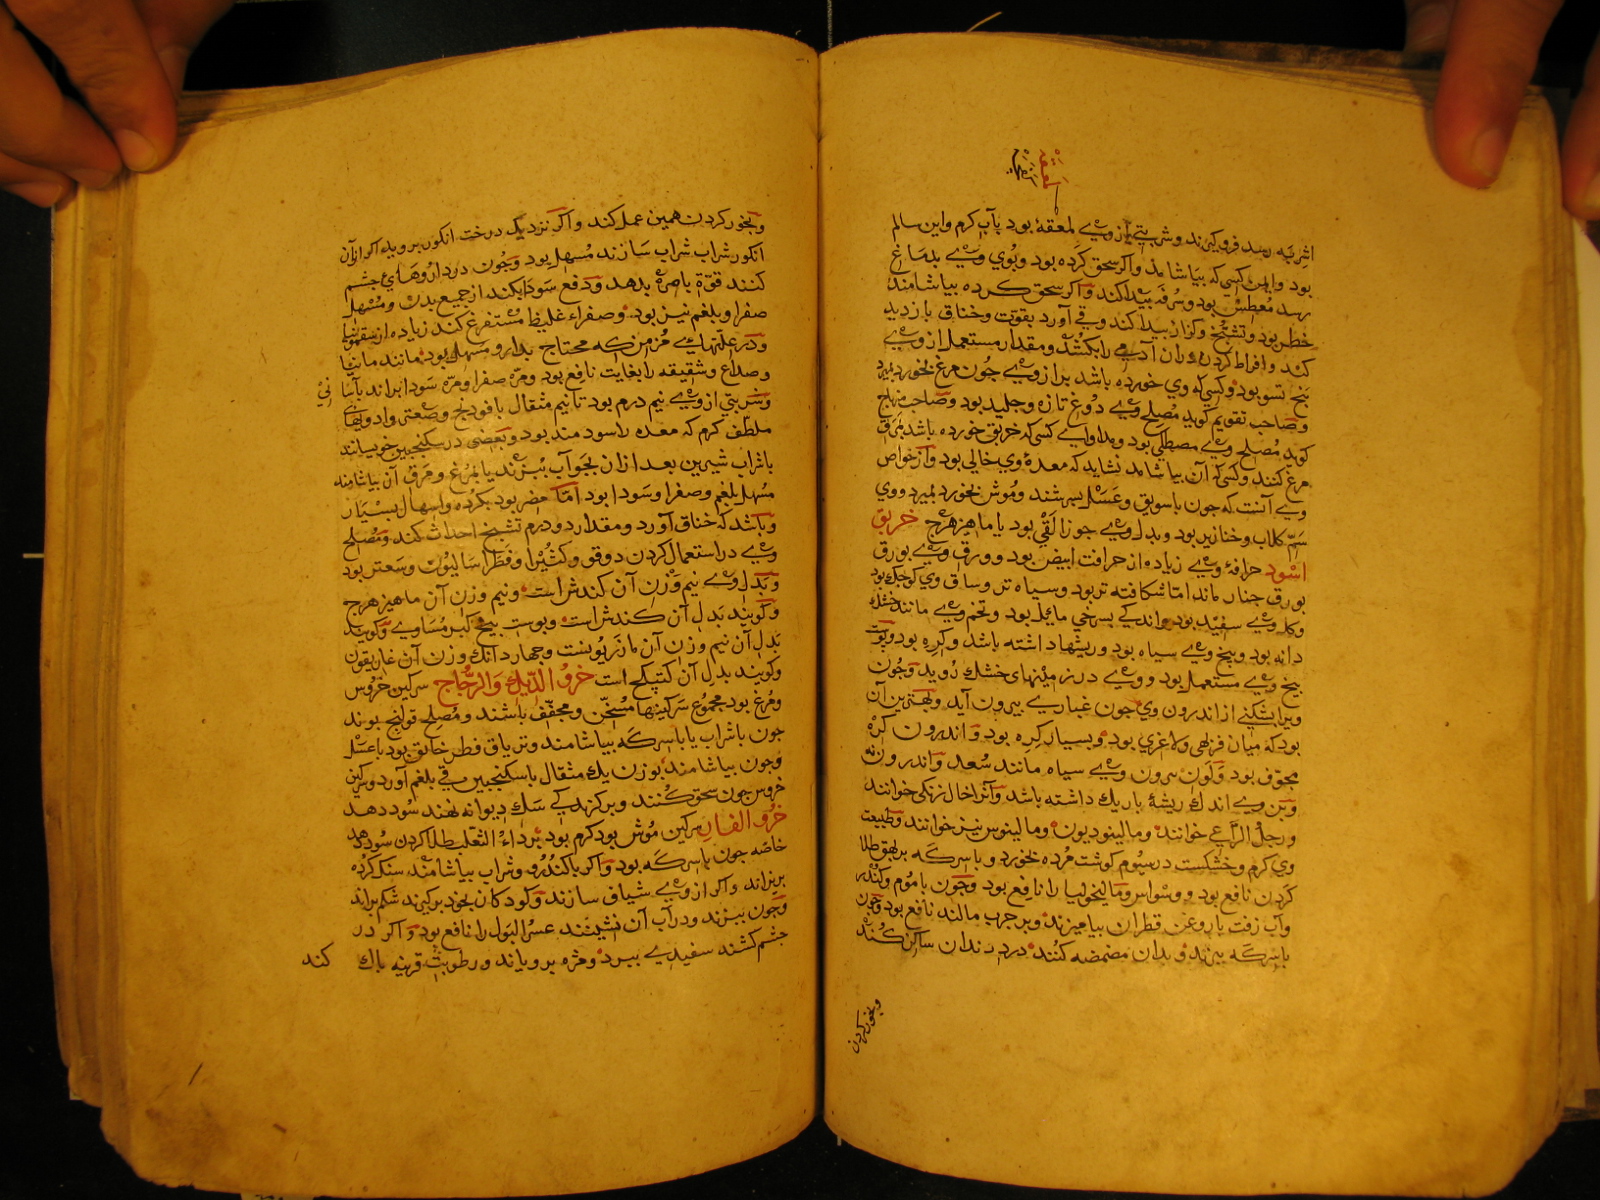 اشربه رسد فروکیرند و شربتی از وی لمعقهٔ بود بآب کرم و این سالم
بود و این کسی که بیاشامد واکر سحق کرده بود و بوی وی بدماغ
رسد معطس بود و سرفه پیدا کند و اکر سحق کرده بیاشامند
خطر بود و تشنج و کزاز پیدا کند و قی آورد بقوت و خناق بازدید
کند و افراط کردن در آن آدمی را بکشد و مقدار مستعمل از وی
پنج تسو بود و کسی که وی خورده باشد براز وی چون مرغ بخورد بمیرد
و صاحب تقویم کوید مصلح وی دوغ تازه و جلید بود و صاحب منهاج
کوید مصلح وی مصطکی بود و مداوای کسی که خربق خورده باشد بمرق
مرغ کنند و کسی که آن بیاشامد نشاید که معدهٔ وی خالی بود و از خواص
وی آنست که چون با سویق و عسل بسرشند و موش بخورد بمیرد و وی
سم کلاب و خنازیر بود و بدل وی جوز القی بود یا ماهیزهرج خربق
اسود حرافهٔ وی زیاده از حرافت ابیض بود و ورق وی بورق
بورق چنار ماند اما شکافته تر بود و سیاه تر و ساق وی کوچک بود
وکل وی سفید بود و اندکی بسرخی مایل بود و تخم وی مانند خشک
دانه بود و بیخ وی سیاه بود و ریشها داشته باشد و کره بود و پوست
بیخ وی مستعمل بود و وی در زمینهای خشک روید و چون
ویرا بشکنی از اندرون وی چون غباری بیرون آید و بهترین آن
بود که میان فربهی و لاغری بود و بسیار کره بود و اندرون کره
مجوف بود و لون بیرون وی سیاه مانند سعد و اندرون
و بن وی اندک ریشهٔ باریک داشته باشد و آنرا خال زنکی خوانند
و رجل الراعی خوانند و مالینودیون و مالینوس نیز خوانند و طبیعت
وی کرم و خشکست در سیوم کوشت مرده بخورد و با سرکه بر بهق طلا
کردن نافع بود و وسواس و مالیخولیا را نافع بود و چون با موم و کندر
و آب زفت با روغن قطران بیامیزند و بر جرب مالند نافع بود و چون
با سرکه بپزند و بدان مضمضه کنند درد دندان ساکن کند
و بخور کردن
و بخور کردن همین عمل کند و اکر نزدیک درخت انکور بروید اکر از آن
انکور شراب سازند مسهل بود و چون در داروهای چشم
کنند قوّة باصره بدهد و دفع سودا بکند از جمیع بدن و مسهل
صفرا و بلغم نیز بود و صفراء غلیظ مستفرغ کند زیاده از سقمونیا
و در علتهای مزمن که محتاج بدارو مسهل بود مانند مانیا
و صداع و شقیقه را بغایت نافع بود و مره صفرا و مره سودا براند بآسانی
و شربتی از وی نیم درم بود تا نیم مثقال با فودنج و صعتر و ادواهای
ملطف کرم که معده را سودمند بود و بعضی در سکنجبین خویسانند
با شراب شیرین بعد از آن بجو آب بپزند یا بمرغ و مرق آن بیاشامند
مسهل بلغم و صفرا و سودا بود اما مضر بود بکرده و اسهال بسیار
و باشد که خناق آورد و مقدار دو درم تشنج احداث کند و مصلح
وی در استعمال کردن دوقو و کثیرا و فطراسالیون و سعتر بود
و بدل وی نیم وزن آن کندش است و نیم وزن آن ماهیزهرج
و کویند بدل آن کندش است و پوست بیخ کبر مساوی و کویند
بدل آن نیم وزن آن مازریونست و چهار دانک وزن آن غاریقون
و کویند بدل آن کتیلح است خرو الدیک والدجاج سرکین خروس
و مرغ بود مجموع سرکینها مسخن و مجفف باشند و مصلح قولنج بوند
چون با شراب یا با سرکه بیاشامند و تریاق فطر خانق بود با عسل
و چون بیاشامند بوزن یک مثقال با سکنجبین قی بلغم آورد و سرکین
خروس چون سحق کنند و بر کزندکی سک دیوانه نهند سود دهد
خرو الفار سرکین موش بود کرم بود بر داء الثعلب طلا کردن سود دهد
خاصه چون با سرکه بود و اکر با کندر و شراب بیاشامند سنک کرده
بریزاند و اکر از وی شیاف سازند و کودکان بخود برکیرند شکم براند
و چون بپزند و در آب آن نشینند عسر البول را نافع بود و اکر در
چشم کشند سفیدی ببرد و مژه برویاند و رطوبت قرنیه پاک
کند